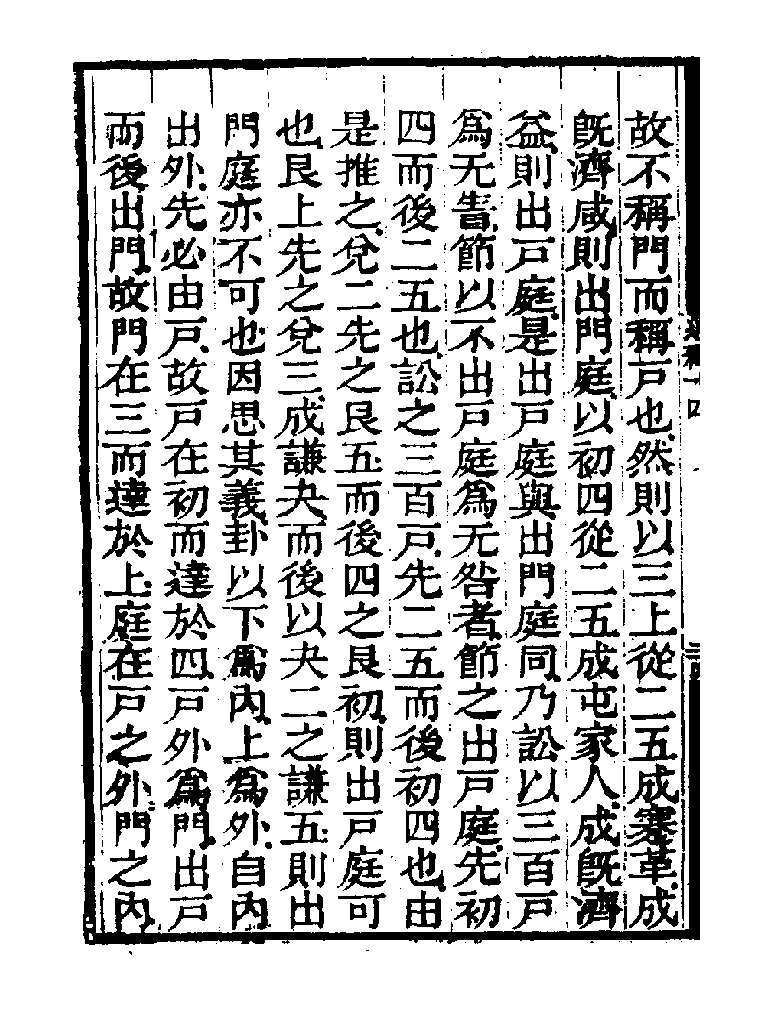 故不稱門而稱戶也然則以三上從二五成蹇革成
旣濟咸則出門庭以初四從二五成屯家人成旣濟
益則出戶庭是出戶庭與出門庭同乃訟以三百戶
爲无眚節以不出戶庭爲无咎者節之出戶庭先初
四而後二五也訟之三百戶先二五而後初四也由
是推之兌二先之艮五而後四之艮初則出戶庭可
也艮上先之兌三成謙夬而後以夬二之謙五則出
門庭亦不可也因思其義卦以下爲內上爲外自內
出外先必由戶故戶在初而達於四戶外爲門出戶
而後出門故門在三而達於上庭在戶之外門之內